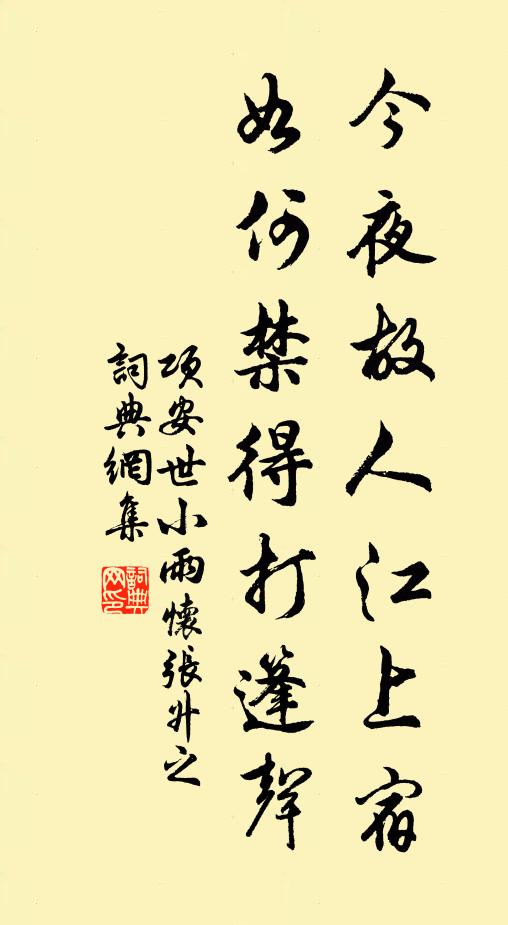 今夜故人江上宿
如何禁得打篷聲
項安世小雨懷張升之
詞典網集
詞典網印